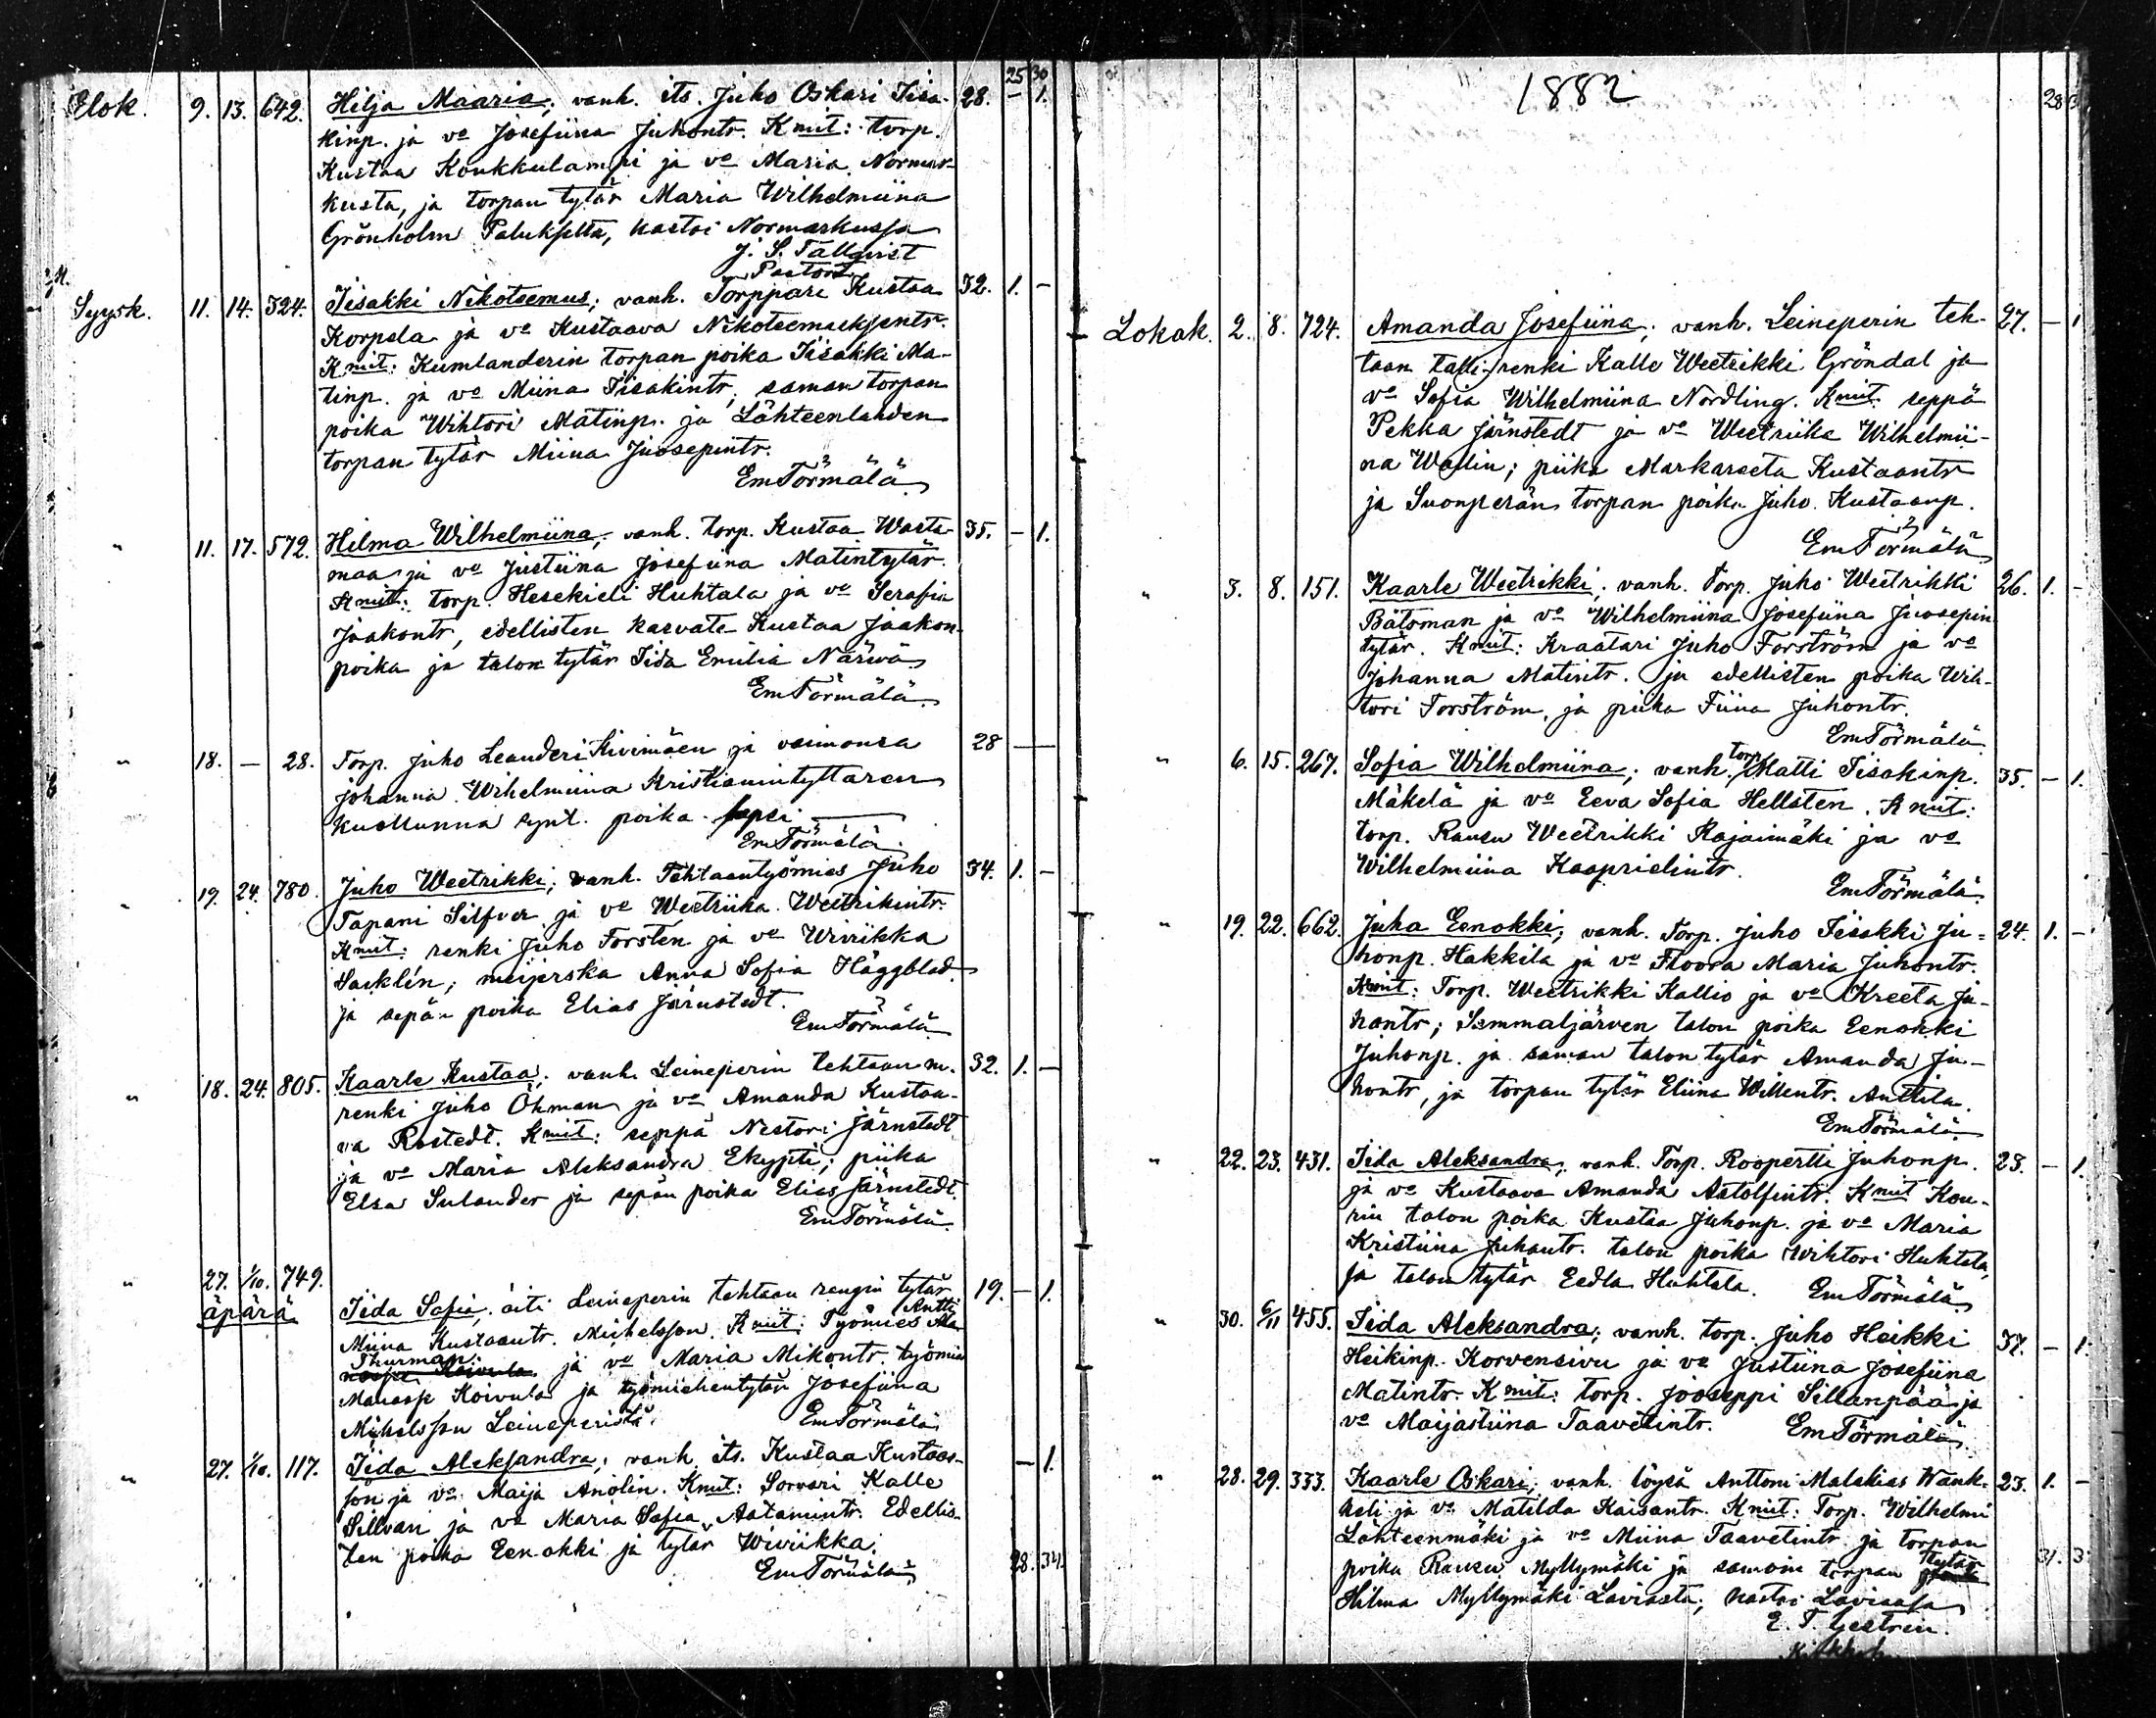 25 30
Elok. 9. 13. 642. Hilja Maaria; vanh. its. Juho Oskari Iisa- 28. - 1.
kinp. ja vo Josefiina Juhontr. Kmit: torp.
Kustaa Koukkulampi ja vo Maria Normar-
kusta, ja torpan tytär Maria Wilhelmiina
Grönholm Paluksılta, kastoi Normarkussa
J. S. Tallqvist
Pastori
Syysk. 11. 14. 324. Iisakki Nikoteemus; vanh. Torppari Kustaa 32. 1. -
Korpela ja vo Kustaava Nikoteemuksentr.
Kmit: Kumlanderin torpan poika Iisakki Ma-
tinp. ja vo Miina Iisakintr, saman torpan
poika Wihtori Matinp. ja Lähteenlahden
torpan tytär Miina Juosepintr.
Em Törmälä
" 11. 17. 572. Hilma Wilhelmiina; vanh. torp. Kustaa Wasta- 35. - 1.
maa ja vo Justiina Josefiina Matintytär.
Kmit: torp. Hesekieli Huhtala ja vo Serafia
Jaakontr, edellisten kasvate Kustaa Jaakon-
poika ja talon tytär Iida Emilia Närwä
Em Törmälä.
" 18. - 28. Torp. Juho Leanderi Kivimäen ja vaimonsa 28 —
Johanna Wihelmiina Kristianintyttären
kuollunna synt. poika lapsi —
Em Törmälä.
" 19. 24. 780. Juho Weetrikki; vanh. Tehtaantyömies Juho 34. 1. -
Tapani Silfver ja vo Weetriika Weetrikintr.
Kmit: renki Juho Forsten ja vo Wivikka
Sacklén; meijerska Anna Sofia Häggblad
ja sepän poika Elias Järnstedt.
Em Törmälä
" 18. 24. 805. Kaarle Kustaa; vanh. Leineperin tehtaan m. 32. 1. -
renki Juho Öhman ja vo Amanda Kustaa-
va Rostedt. Kmit: seppä Nestori Järnstedt
ja vo Maria Aleksandra Ekypti; piika
Elsa Sulander ja sepän poika Elias Järnstedt.
Em Törmälä.
" 27. 1/10. 749.
äpärä Iida Sofia, äiti Leineperin tehtaan rengin tytär 19. - 1.
Antti
Miina Kustaantr. Michelsson. Kmit: Työmies
Thurman ja vo Maria Mikontr. työmies
Manasse Koivula ja työmiehentytär Josefiina
Mihelsson Leineperistä. Em Törmälä
" 27. 1/10. 117. Iida Aleksandra; vanh. its. Kustaa Kustaas- - 1.
son ja vo Maija Anolin. Kmit: Sorvari Kalle
Sillvan ja vo Maria Sofia Aatamintr. Edellis-
ten poika Eenokki ja tytär Wiviikka.
Em Törmälä 28. 34.
1882
28
Lokak. 2. 8. 724. Amanda Josefiina; vanh. Leineperin teh- 27. - 1
taan talli renki Kalle Weetrikki Gröndal ja
vo Sofia Wilhelmiina Nordling. Kmit: seppä
Pekka Järnstedt ja vo Weetriika Wilhelmii-
na Wallin; piika Markareeta Kustaantr
ja Suonperän torpan poika Juho Kustaanp.
Em Törmälä
" 3. 8. 151. Kaarle Weetrikki; vanh. Torp. Juho Weetrikki 26. 1. -
Båtsman ja vo Wilhelmiina Josefiina Juosepin
tytär. Kmit: Kraatari Juho Forström ja vo
Johanna Matintr. ja edellisten poika Wih-
tori Forström, ja piika Fiina Juhontr.
Em Törmälä.
" 6. 15. 267. Sofia Wilhelmiina; vanh. torp. Matti Iisakinp. 35. - 1.
Mäkelä ja vo Eeva Sofia Hellsten. Kmit:
torp. Ransu Weetrikki Rajaimäki ja vo
Wilhelmiina Kaaprielintr.
Em Törmälä.
" 19. 22. 662. Juha Eenokki; vanh. Torp. Juho Iisakki Ju- 24. 1. -
honp. Hakkila ja vo Floora Maria Juhontr.
Kmit: Torp. Weetrikki Kallio ja vo Kreeta Ju-
hontr; Sammaljärven talon poika Eenokki
Juhonp. ja saman talon tytär Amanda Ju-
hontr, ja torpan tytär Eliina Willentr. Anttila.
Em Törmälä.
" 22. 23. 431. Iida Aleksandra; vanh. Torp. Roopertti Juhonp. 23. - 1.
ja vo Kustaava Amanda Astolfintr. Kmit Kou-
rin talon poika Kustaa Juhonp. ja vo Maria
Kristiina Juhontr. talon poika Wihtori Huhtala,
ja talon tytär Eedla Huhtala. Em Törmälä
" 30. 6/11 455. Iida Aleksandra; vanh. torp. Juho Heikki 37. - 1.
Heikinp. Korvensivu ja vo Justiina Josefiina
Matintr. Kmit: torp. Jooseppi Sillanpää ja
vo Maijastiina Taavetintr. Em Törmälä.
" 28. 29. 333. Kaarle Oskari; vanh. löysä Anttoni Malakias Wänk- 23. 1. -
keli ja vo Matilda Kaisantr. Kmit: Torp. Wilhelmi
Lähteenmäki ja vo Miina Taavetintr ja torpan
poika Ransu Myllymäki ja samoin torpan tytär 31. 3
Hilma Myllymäki Laviasta; kastoi Laviassa
E. T. Gestrin.
K.